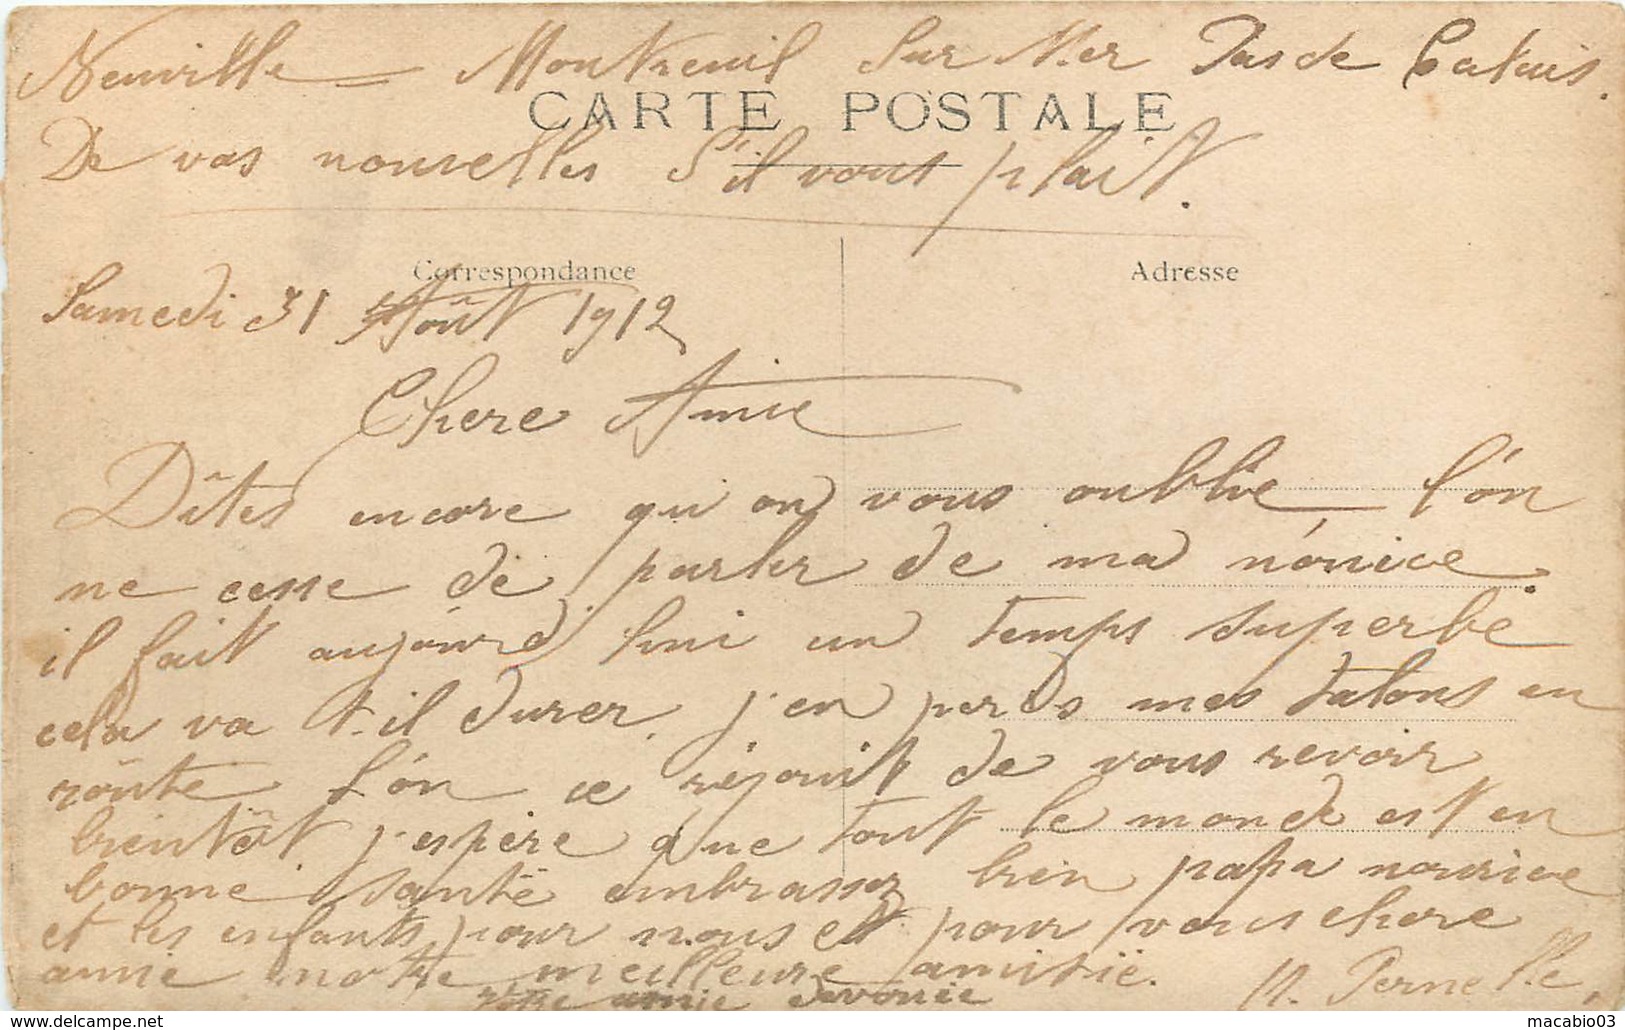 Neuville Montreuil sur Mer Pas de Calais.
CARTE POSTALE
De vos nouvelles s'il vout plait.
Correspondance
Adresse
Samedi 31 Août 1912
Chere Amie
Dîtes encore qui on vous oublie l'on
ne cesse de parler de ma nourice.
il fait aujourd'hui un temps superbe
cela va t-il durer. j'en perds mes talons en
route l'on ce réjouit de vous revoir
bientôt j'espère que tout le monde est en
bonne santé embrassez bien papa nourice
et les enfants pour nous et pour vous chere
amie notre meilleure amitié.
votre amie dévouée
M. Pernelle.
macabio03